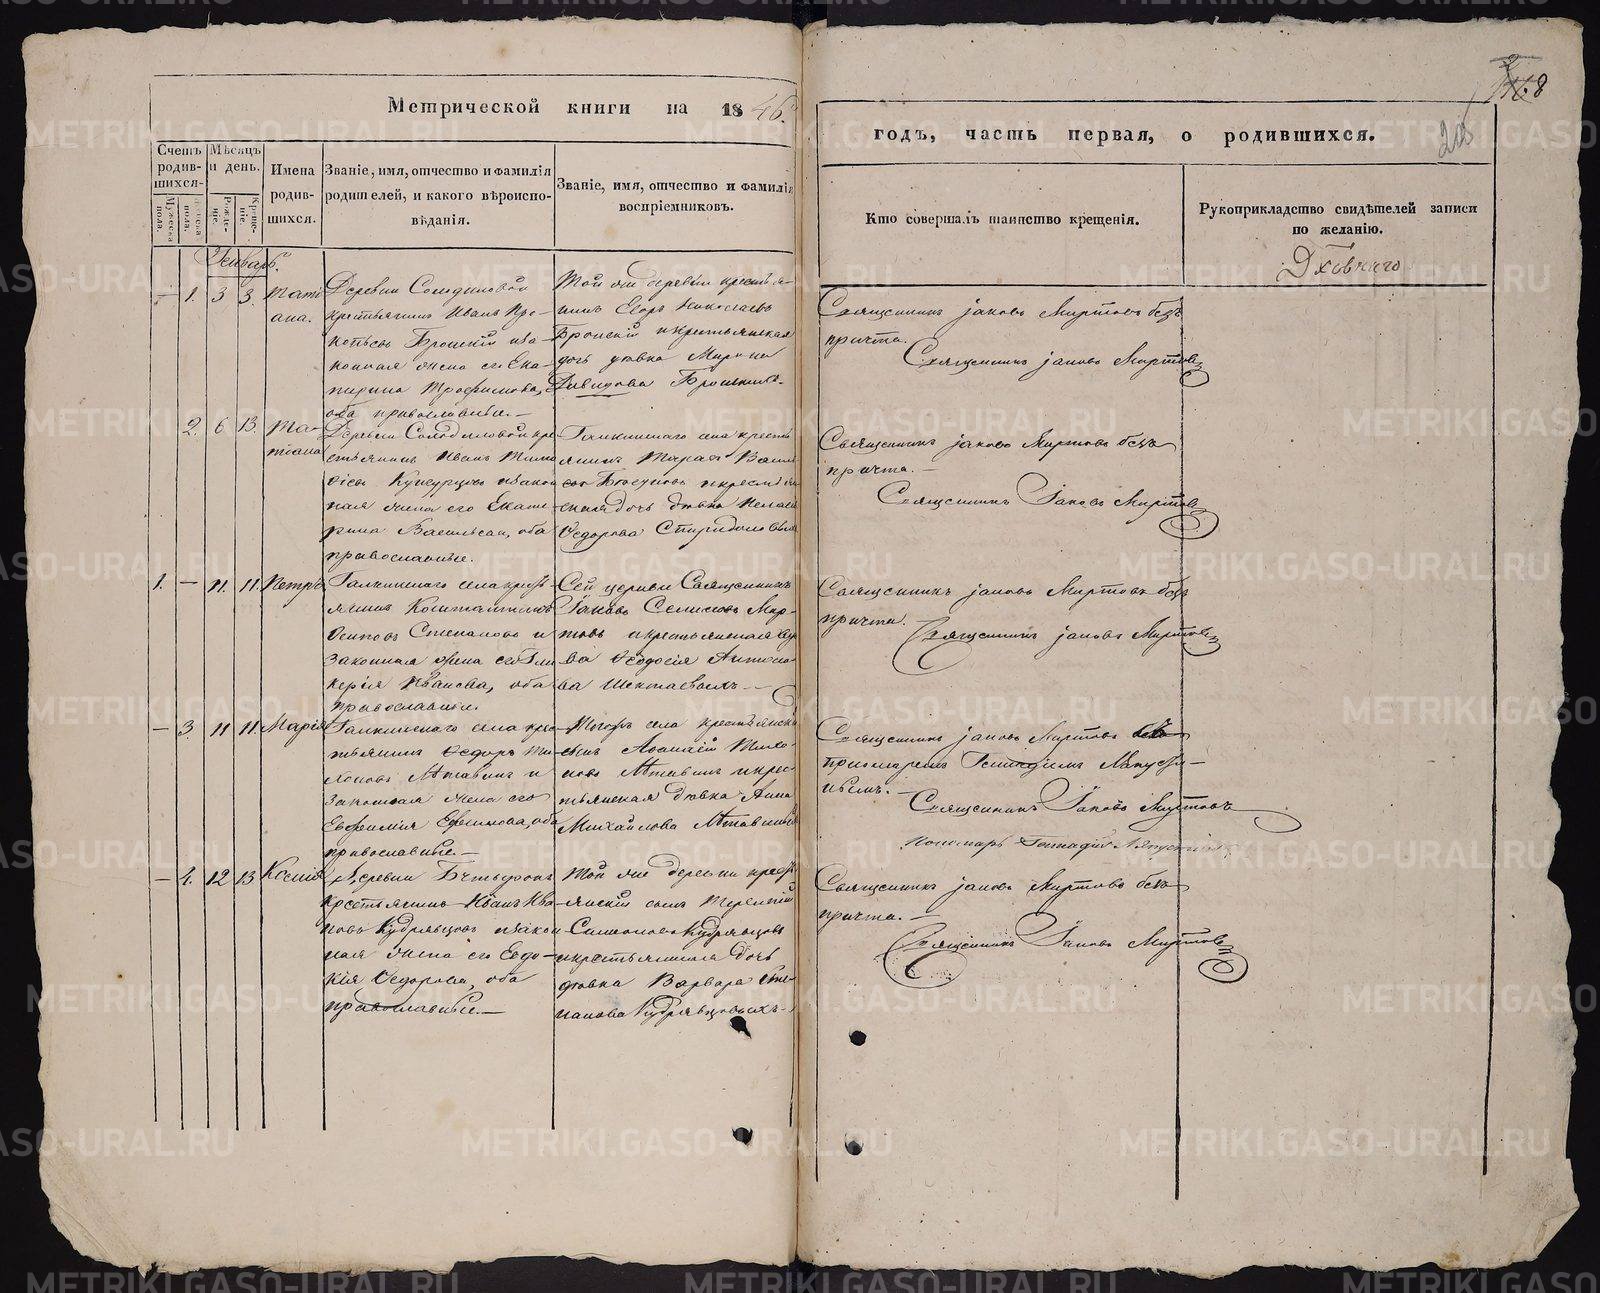 Метрической книги на 1846.
годъ, часть первая, о родившихся.
Счетъ родив-шихся.
Мужеска пола.
Женска пола.
Мѣсяцъ и день.
Рожде-ніе.
Креще-ніе.
Имена родив-шихся.
Званіе, имя, отчество и фамилія
родителей, и какого вѣроиспо-
вѣданія.
Званіе, имя, отчество и фамилія
воспріемниковъ.
Кто совершалъ таинство крещенія.
Рукоприкладство свидѣтелей записи
по желанію.
Январь.
— 1. 3 3. Тати-
ана.
Деревни
крестьянинъ Иванъ Про-
копьевъ и за-
конная жена его Ека-
терина Трофимова,
оба православные.—
Той же деревни крестья-
нинъ Егоръ Николаевъ
и крестьянская
дочь дѣвка Марина
Давидова
Священникъ Іаковъ Миртовъ безъ
причта.
Священникъ Іаковъ Миртовъ
2. 6 13. Та-
тіана
Деревни Солодиловой кре-
стьянинъ Иванъ Тимо-
ѳеевъ и закон-
ная жена его Екате-
рина Васильева, оба
православные.
Галкинскаго села кресть-
янинъ Тарасъ Васил
и крестьян
ская дочь дѣвка Пелаге
Ѳедорова Спиридонова
Священникъ Іаковъ Миртовъ безъ
причта.—
Священникъ Іаковъ Миртовъ
1. — 11. 11. Петръ
Галкинскаго села кресть-
янинъ
Осиповъ Степановъ и
законная жена его Гли-
керія Иванова, оба
православные.
Сей церкви Священникъ
Іаковъ Семеновъ Мир-
товъ и крестьянская вдо-
ва Ѳеодосія Антоно-
ва
Священникъ Іаковъ Миртовъ безъ
причта.—
Священникъ Іаковъ Миртовъ
— 3. 11 11. Марія
Галкинскаго села кре-
стьянинъ Ѳедоръ Ти-
и
законная жена его
Евфимія Ефимова, оба
православные.—
Тогоже села крестьянскій
сынъ Аѳанасій
и крес-
тьянская дѣвка Анна
Михайлова
Священникъ Іаковъ Миртовъ съ
пономаремъ Геннадіемъ Ляпусти-
нымъ.—
Священникъ Іаковъ Миртовъ
Пономарь Геннадій Ляпустинъ
— 4. 12 13 Ксенія
Деревни
крестьянинъ Иванъ Ива-
новъ Кудрявцовъ и закон-
ная жена его Евдо-
кія Ѳедорова, оба
православные.—
Той же деревни кресть-
янскій сынъ Терентій
Симеоновъ Кудрявцовъ
и крестьянская дочь
дѣвка Варвара Сте-
панова Кудрявцовыхъ.—
Священникъ Іаковъ Миртовъ безъ
причта.—
Священникъ Іаковъ Миртовъ
METRIKI.GASO-URAL.RU